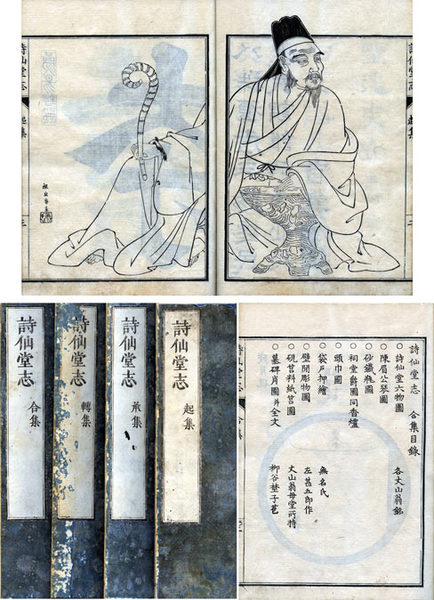 詩仙堂志
起集
詩仙堂志
起集
詩仙堂志
起集
詩仙堂志
承集
詩仙堂志
轉集
詩仙堂志
合集
詩仙堂志 合集目錄
○詩仙堂六物圖 各丈山翁銘
○陳眉公琴圖
○砂鐵瓶圖
○祠堂爵圖同香爐
○頭巾圖
○袋戸押繪 無名氏
○壁間彫物圖 左甚五郎作
○硯筥料紙筥圖 丈山翁母堂所持
○墓碑肖圖并全文 柳谷埜子苞
詩仙堂志
合集